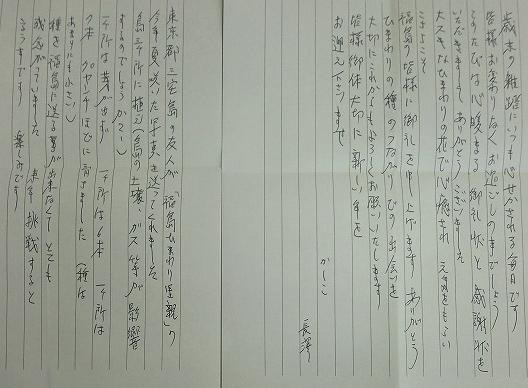 歳末の雑踏にいつも心せかされる毎日です
皆様お変わりなくお過ごしの事でしょう
このたびは心暖まる御礼状と感謝状を
いただきましてありがとうございました
大スキなひまわりの花で心癒され元気をもらい
こちらこそ
福島の皆様に御礼を申し上げます ありがとう
ひまわりの種のつながりでの出会いを
大切にこれからもよろしくお願いいたします
皆様御体大切に新しい年を
お迎え下さいませ
かしこ
長澤
東京都三宅島の友人が「福島ひまわり里親」の
今年夏咲いた写真を送ってくれました
島三ヶ所に植え(島の土壌、ガス等が影響
するのでしょうか
一ヶ所は芽が出ず 一ヶ所は6本 一ヶ所は
7本 90センチほどに育ちました(種は
あまりにも小さい)
種を福島に送る事が出来なくてとても
残念がっていました 来年挑戦すると
そうです 楽しみです